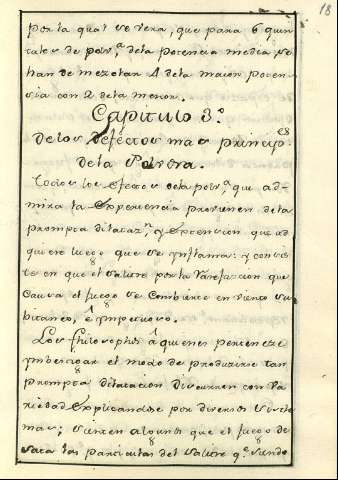 18
por la qual se vera, que para 6 quin
tales de polv.ª dela potencia media se
han de mezclar 4 dela maior poten
sia con 2 dela menor.
Capitulo 3.º
Delos efectos mas princip.es
dela Polvora.
Todos los efectos dela polv.ª que ad-
mira la Experiencia provienen dela
prompta dilataz.n, y Extencion que ad
quiere luego que se ynflama: y consis
te en que el salitre por la rarefaccion que
causa el fuego se combierte en viento su
bitaneo, è ympetuoso.
Los Philosophos à quienes pertenese
ymbestigar el modo de producirse tan
prompta dilatacion discurren con va
riedad explicandose por diversos siste
mas; sienten algunos que el fuego de
sata las particulas del salitre q.e siendo